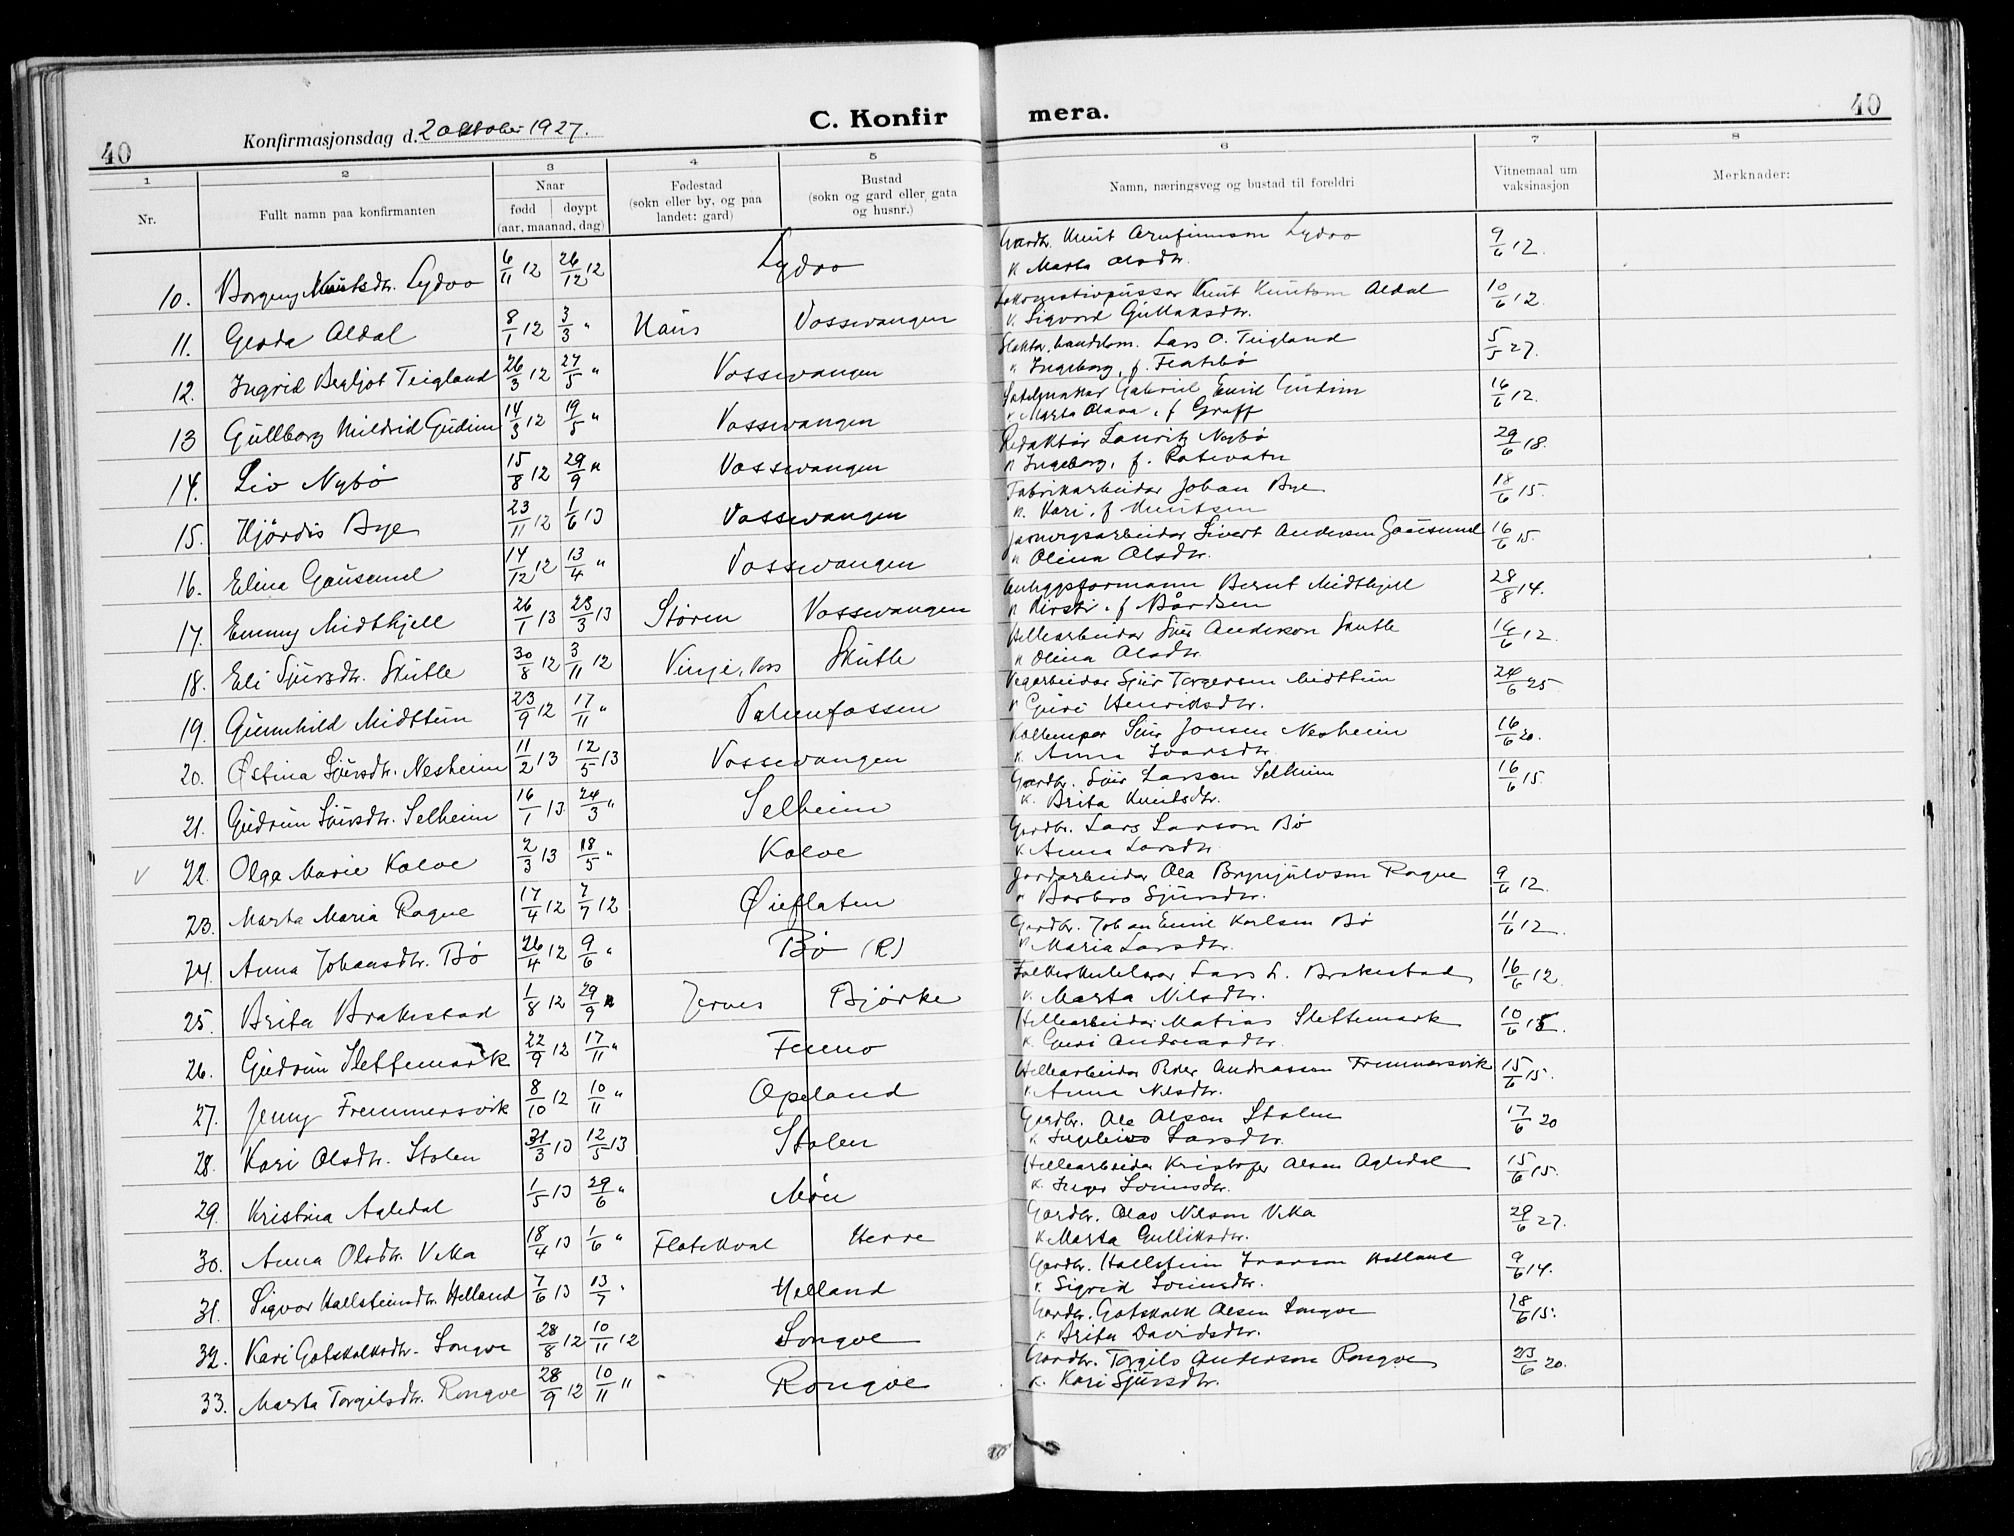 40
Konfirmasjonsdag d. 2 oktober 1927.
C. Konfir
mera.
40
1
2
3
4
5
6
7
8
Nr.
Fullt namn paa konfirmanten
Naar
fødd døypt
(aar, maanad, dag)
Fødestad
(sokn eller by, og paa
landet: gard)
Bustad
(sokn og gard eller gata
og husnr.)
Namn, næringsveg og bustad til foreldri
Vitnemaal um
vaksinasjon
Merknader:
10. Borgny Knutsdtr. Lydvo 6/11 12 26/12 12 Lydvo Gardbr. Knut Arnfinnson Lydvo 9/6 12.
k Marta Olsdtr.
11. Gerda Aldal 8/1 12 3/3 " Haus Vossevangen Lokomotivpussar Knut Knutson Aldal 10/6 12.
k. Sigvord Gullaksdtr.
12. Ingrid Bergljot Teigland 26/3 12 27/5 " Vossevangen Slaktar, handelsm. Lars O. Teigland 5/5 27.
k Ingeborg, f.
13 Gullborg Mildrid Gudim 14/3 12 19/5 " Vossevangen Salmakar Gabriel Emil Gudim 16/6 12.
k Marta Olava, f Graff
14. Liv Nybø 15/8 12 29/9 " Vossevangen Redaktør Lauritz Nybø 29/6 18.
k Ingeborg, f. Rotevatn
15. Hjørdis Bye 23/11 12 1/6 13 Vossevangen Fabrikarbeidar Johan Bye 18/6 15.
k. Kari, f Knutsen
16. Eline Gausemel 14/12 12 13/4 " Vossevangen Jarnvegsarbeidar Sivert Andersen Gausemel 16/6 15.
k Olina Olsdtr.
17. Emmy Midthjell 26/1 13 23/3 13 Støren Vossevangen Anleggsformann Bernt Midthjell 28/8 14.
k Kirsti, f Bårdsen
18. Eli Sjursdtr. Skutle 30/8 12 3/11 12 Vinje, Voss Skutle Hellearbeidar Sjur Anderson Skutle 16/6 12.
k Olina Olsdtr.
19. Gunnhild Midttun 23/9 12 17/11 " Palmafossen Vegarbeidar Sjur Torgersen Midttun 24/6 25
k Guri Henriksdtr.
20. Østina Sjursdtr. Nesheim 11/2 13 12/5 13 Vossevangen Sjur Jonsen Nesheim 16/6 20.
k. Anna Ivarsdtr.
21. Gudrun Sjursdtr. Selheim 16/1 13 24/3 " Selheim Gardbr. Sjur Larson Selheim 16/6 15.
k. Brita Knutsdtr.
V 22. Olga Marie Kolve 2/3 13 18/5 " Kolve Gardbr. Lars Larson Bø
k. Anna Larsdtr.
23. Marta Maria Rogne 17/4 12 7/7 12 Øieflaten Jordarbeidar Ola Brynjulvson Rogne 9/6 12.
k Barbro Sjursdtr.
24. Anna Johansdtr. Bø 26/4 12 9/6 " Bø (R) Gardbr. Johan Emil Karlsen Bø 11/6 12.
k Maria Larsdtr.
25. Brita Brakestad 1/8 12 29/9 " Jernes Bjørke Folkeskulelærar Lars L. Brakestad 16/6 12.
k. Marta Nilsdtr.
26. Gudrun Slettemark 22/9 12 17/11 " Fenno Hellearbeidar Matias Slettemark 10/6 15.
k. Guri Andreasdtr.
27. Jenny Fremmersvik 8/10 12 10/11 " Opeland Hellearbeidar Peder Andreassen Fremmersvik 15/6 15.
k. Anna Nilsdtr.
28. Kari Olsdtr. Stolen 31/3 13 12/5 13 Stolen Gardbr. Ole Olson Stolen 17/6 20
k Ingebjørg Larsdtr.
29. Kristina Agledal 1/5 13 29/6 " Møn Hellearbeidar Kristofer Olsen Agledal 15/6 15.
k. Inger
30. Anna Olsdtr. Veka 18/4 13 1/6 " Flatekval Herre Gardbr. Olav Nilson Veka 29/6 27.
k Marta Gulliksdtr.
31. Sigvor Hallsteinsdtr. Helland 7/6 13 13/7 " Helland Gardbr. Hallstein Ivarson Helland 9/6 14.
k. Sigrid
32. Kari Gotskalksdtr. Songve 28/8 12 10/11 12 Songve Gardbr. Gotskalk Olsen Songve 18/6 15.
k. Brita Davidsdtr.
33. Marta Torgilsdtr. Rongve 28/9 12 10/11 " Rongve Gardbr. Torgils Anderson Rongve 23/6 20.
k. Kari Sjursdtr.